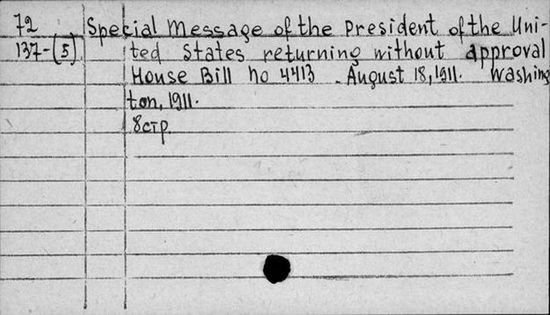 72
137-(5)
Special Message of the President of the Uni-
ted States returning without approval
House Bill no 4413. August 18, 1911. Washing
ton, 1911.
8стр.